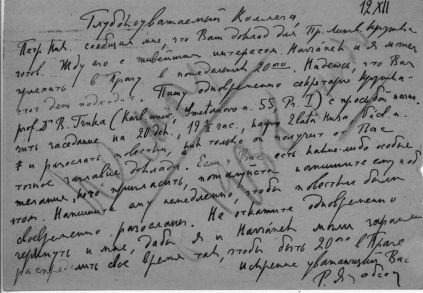 12.XII
Глубокоуважаемый Коллега,
Петр Ник. сообщил мне, что Ваш доклад для Пр. Линг. кружка
готов. Жду его с живейшим интересом. Havránek и я можем
приехать в Прагу в понедельник 20го. Надеюсь, что Вам
этот день подходит. Пишу одновременно секретарю кружка –
prof. Dr B. Trnka (Karl. univ., Smetanovo n. 55, Pr. I) с просьбой назна-
чить заседание на 20 дек., 19 ½ час., 
и разослать повестки, как только он получит от Вас
точное заглавие доклада. Если у Вас есть какие-либо особые
желания, кого пригласить, пожалуйста напишите ему и об
этом. Напишите ему немедленно, чтобы повестки были
своевременно разосланы. Не откажите одновременно
черкнуть и мне, дабы я и Havránek могли заранее
распределить свое время так, чтобы быть 20го в Праге
искренне уважающий Вас
Р. Якобсон